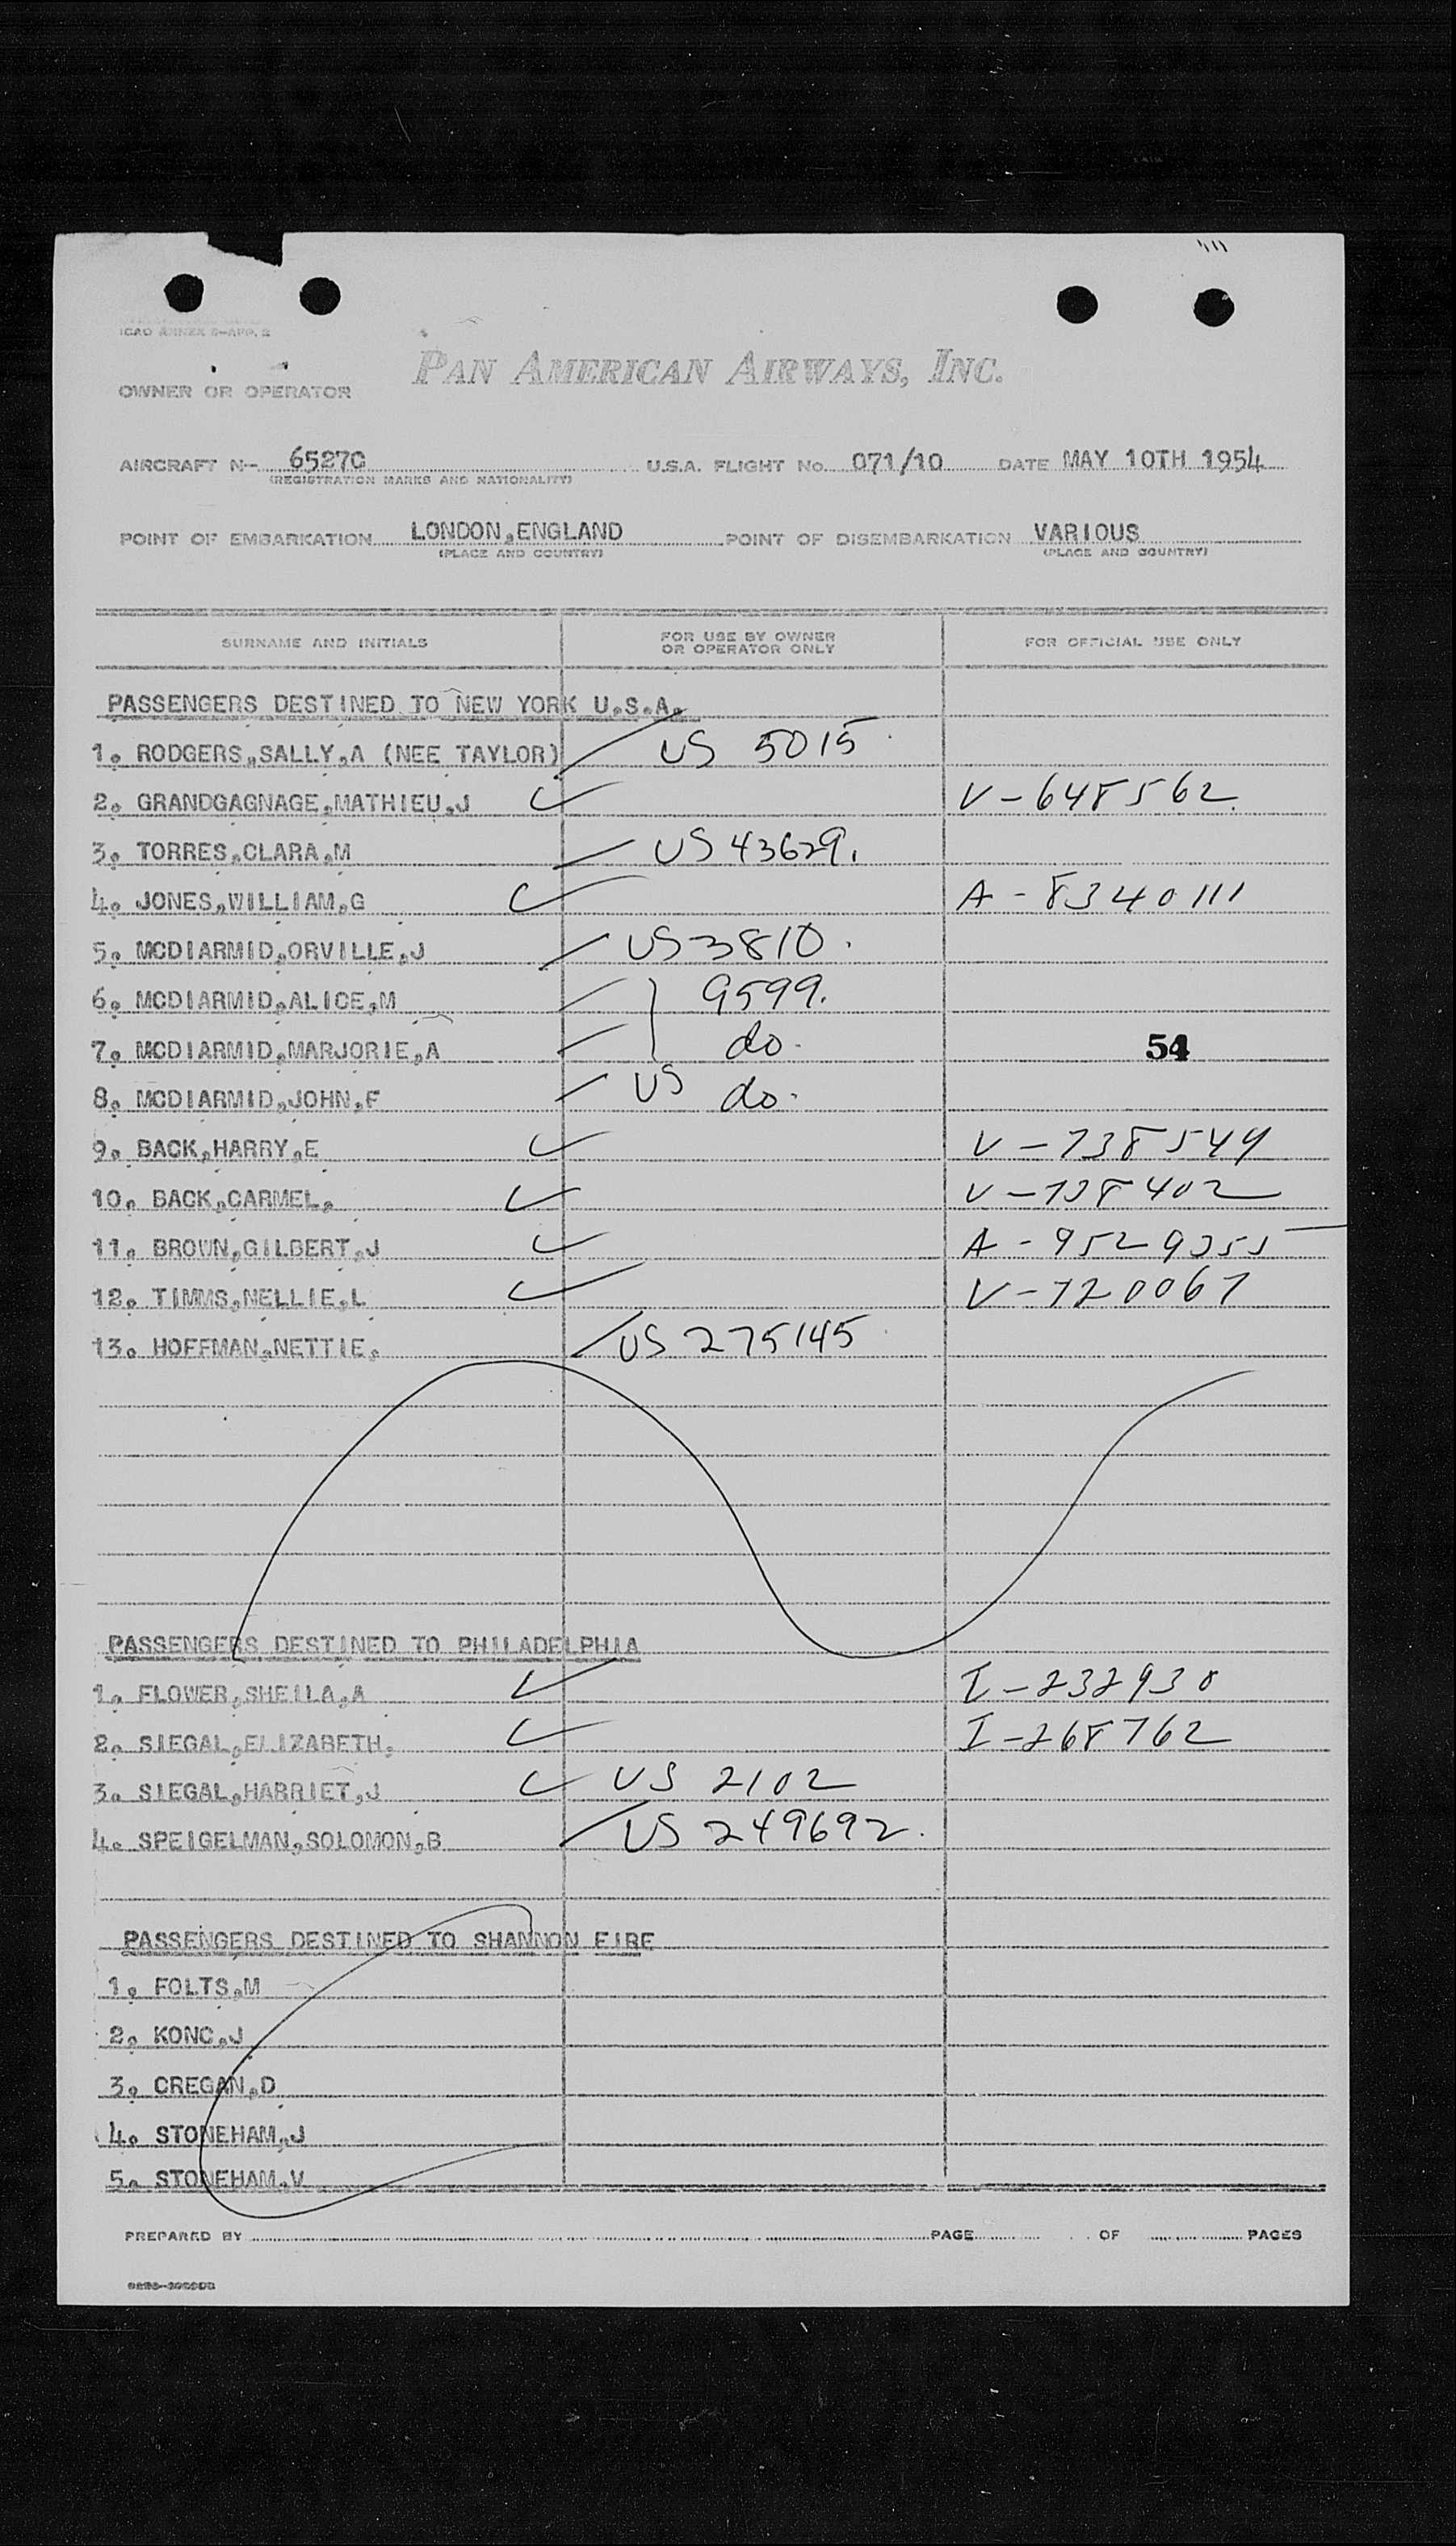 ICAO ANNEX 9-APP. 2
PAN AMERICAN AIRWAYS, INC.
OWNER OR OPERATOR
AIRCRAFT N-- 6527C U.S.A. FLIGHT No. 071/10 DATE MAY 10TH 1954
(REGISTRATION MARKS AND NATIONALITY)
POINT OF EMBARKATION LONDON,ENGLAND POINT OF DISEMBARKATION VARIOUS
(PLACE AND COUNTRY) (PLACE AND COUNTRY)
SURNAME AND INITIALS FOR USE BY OWNER OR OPERATOR ONLY FOR OFFICIAL USE ONLY
PASSENGERS DESTINED TO NEW YORK U.S.A.
1. RODGERS,SALLY,A (NEE TAYLOR) US 5015
2. GRANDGAGNAGE,MATHIEU,J V-648562
3. TORRES,CLARA,M US 43629.
4. JONES,WILLIAM,G A-8340111
5. MCDIARMID,ORVILLE,J US 3810.
6. MCDIARMID,ALICE,M 9599.
7. MCDIARMID,MARJORIE,A do. 54
8. MCDIARMID,JOHN,F US do.
9. BACK,HARRY,E V-738544
10. BACK,CARMEL, V-738402
11. BROWN,GILBERT,J A-9529355
12. TIMMS,NELLIE,L V-720067
13. HOFFMAN,NETTIE, US 275145
PASSENGERS DESTINED TO PHILADELPHIA
1. FLOWER,SHEILA,A I-232930
2. SIEGAL,ELIZABETH, I-268762
3. SIEGAL,HARRIET,J US 2102
4. SPEIGELMAN,SOLOMON,B US 249692.
PASSENGERS DESTINED TO SHANNON EIRE
1. FOLTS,M
2. KONC,J
3. CREGAN,D
4. STONEHAM,J
5. STONEHAM,V
PREPARED BY PAGE OF PAGES